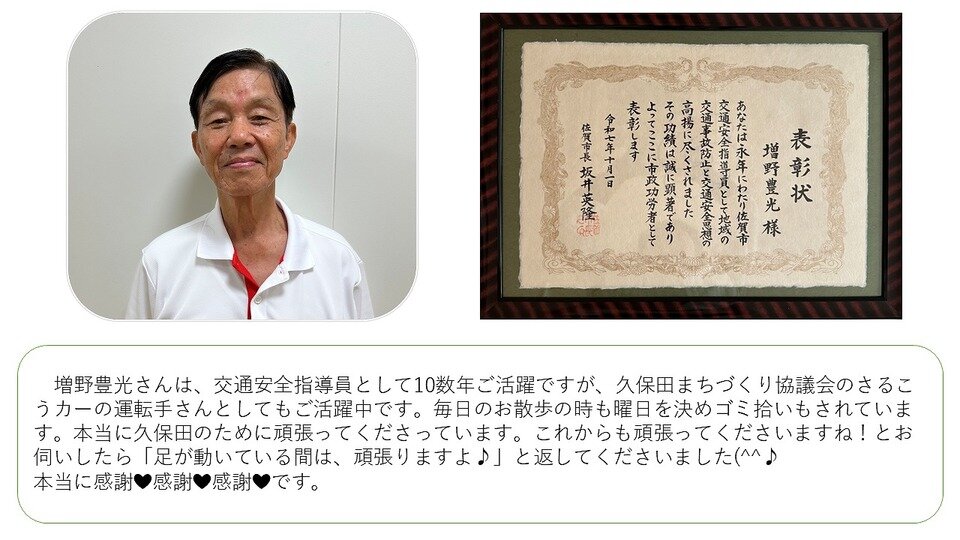 表彰状
増野豊光 様
あなたは永年にわたり佐賀市
交通安全指導員として地域の
交通事故防止と交通安全思想の
高揚に尽くされました
その功績は誠に顕著であり
よってここに市政功労者として
表彰します
令和七年十月一日
佐賀市長 坂井英隆
増野豊光さんは、交通安全指導員として10数年ご活躍ですが、久保田まちづくり協議会のさるこ
うカーの運転手さんとしてもご活躍中です。毎日のお散歩の時も曜日を決めゴミ拾いもされていま
す。本当に久保田のために頑張ってくださっています。これからも頑張ってくださいますね！とお
伺いしたら「足が動いている間は、頑張りますよ♪」と返してくださいました(^^♪
本当に感謝♥感謝♥感謝♥です。